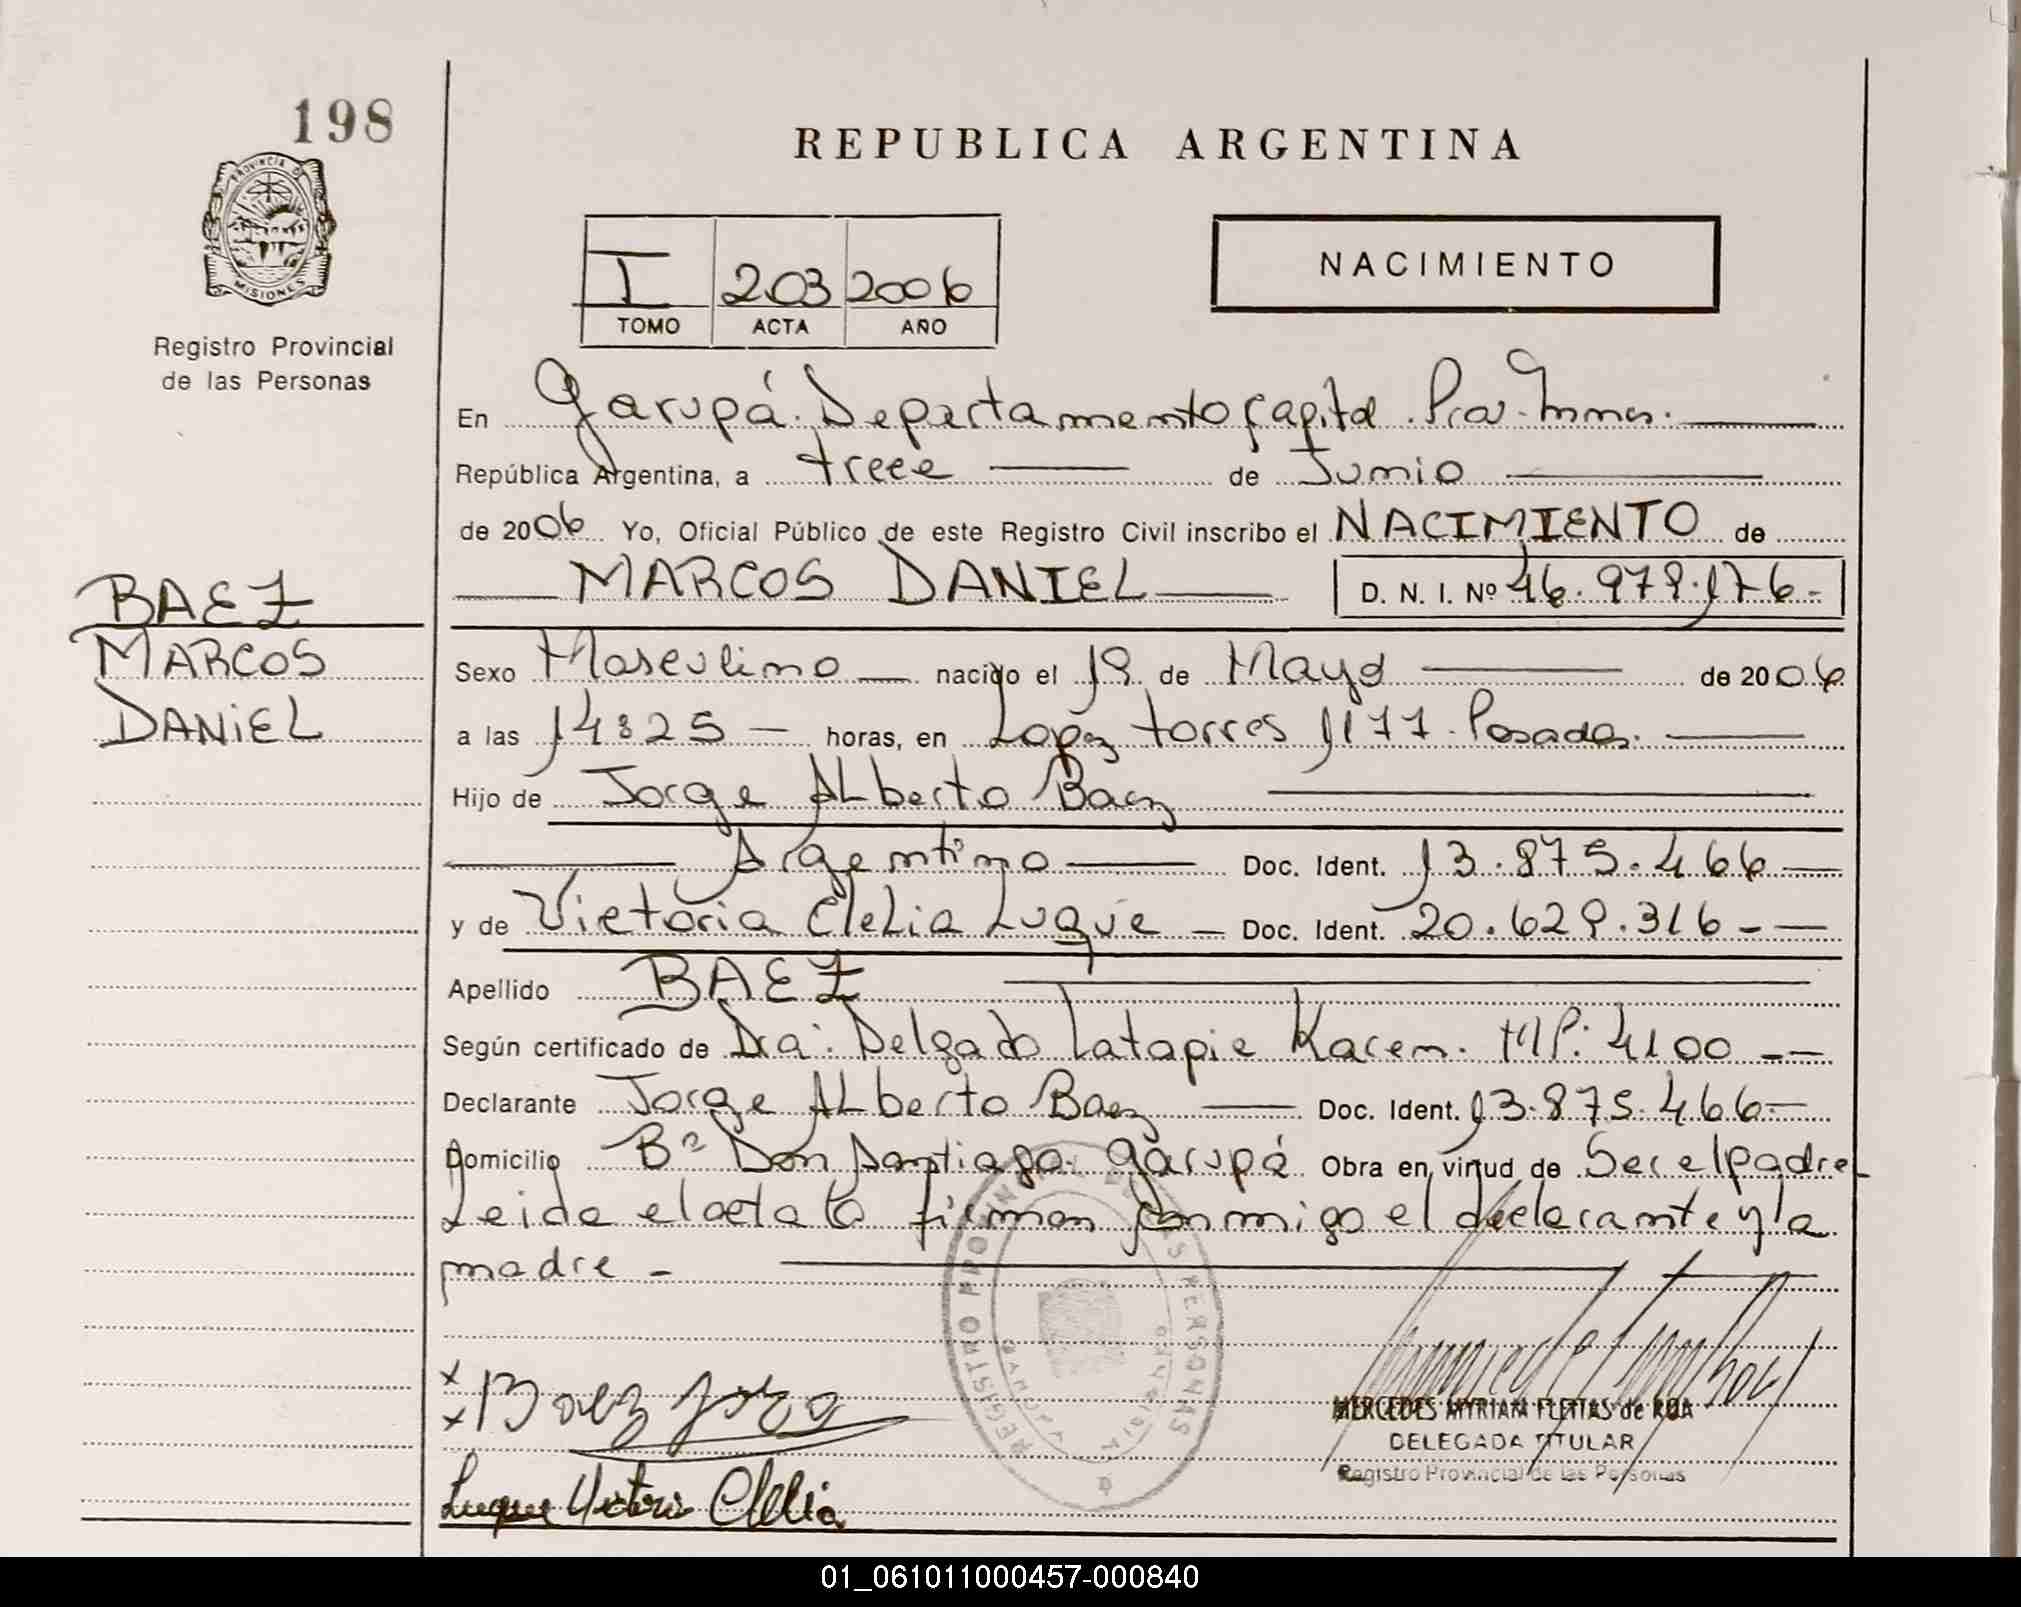 198
REPUBLICA ARGENTINA
PROVINCIA DE MISIONES
Registro Provincial
de las Personas
I 203 2006
TOMO ACTA AÑO
NACIMIENTO
En Garupá. Departamento Capital. Prov. Mnes.
República Argentina, a trece de Junio
de 2006 Yo, Oficial Público de este Registro Civil inscribo el NACIMIENTO de
MARCOS DANIEL D. N. I. Nº 46.979.176.-
BAEZ
MARCOS
DANIEL
Sexo Masculino nacido el 19 de Mayo de 2006
a las 14:25 horas, en Lopez Torres 1177. Posadas.
Hijo de Jorge Alberto Baez
Argentino Doc. Ident. 13.875.466
y de Victoria Clelia Luque Doc. Ident. 20.629.316
Apellido BAEZ
Según certificado de Dra. Delgado Latapie Karem. MP: 4100
Declarante Jorge Alberto Baez Doc. Ident. 13.875.466
Domicilio Bº Don Santiago. Garupá. Obra en virtud de Ser el padre
Leida el acta la firman conmigo el declarante y la
madre -
REGISTRO PROVINCIAL DE LAS PERSONAS
x
x Baez Jorge
Luque Victoria Clelia
MERCEDES MYRIAM FLEITAS de ROA
DELEGADA TITULAR
Registro Provincial de las Personas
01_061011000457-000840